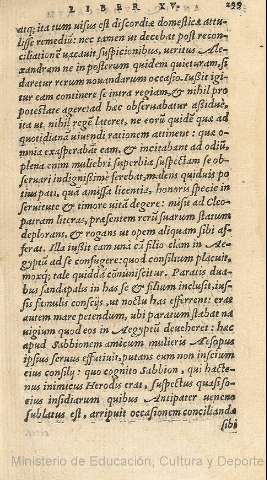 LIBER XV. 299
atq; ita tum uisus est discordiæ domesticæ attu-
lisse remediũ: nec tamen ut decebat post recon-
ciliationẽ uacauit suspicionibus, ueritus Ale-
xandram ne in posterum quidem quieturam, si
daretur rerum nouandarum occasio. Iussit igi-
tur eam continere se intra regiam, & nihil pro
potestate agere: ad hæc obseruabatur assiduè,
ita ut nihil regẽ lateret, ne eorũ quidẽ quæ ad
quotidianã uiuendi rationem attinent: quæ o-
mnia exasperabãt eam, & incitabant ad odiũ,
plena enim muliebri superbia suspectam se ob-
seruari indignissimè ferebat, malens quiduis po
tius pati, quã amissa licentia, honoris specie in
seruitute & timore uitã degere: misit ad Cleo-
patram literas, præsentem rerũ suarum statum
deplorans, & rogans ut opem aliquam sibi af-
ferat. Illa iussit eam unà cũ filio clam in Ae-
gyptũ ad se confugere: quod consilium placuit,
moxq; tale quiddã cõminiscitur. Paratis dua-
bus sandapalis in has se & filium inclusit, ius-
sis famulis conscijs, ut noctu has efferrent: erat
autem mare petendum, ubi paratum stabat na
uigium quod eos in Aegyptũ deueheret: hæc
apud Sabbionem amicum mulieris Aesopus
ipsius seruus effutiuit, putans eum non inscium
eius consilij: quo cognito Sabbion, qui hacte-
nus inimicus Herodis erat, suspectus quasi so-
cius insidiarum quibus Antipater veneno
sublatus est, arripuit occasionem conciliandæ
sibi
Ministerio de Educación, Cultura y Deporte